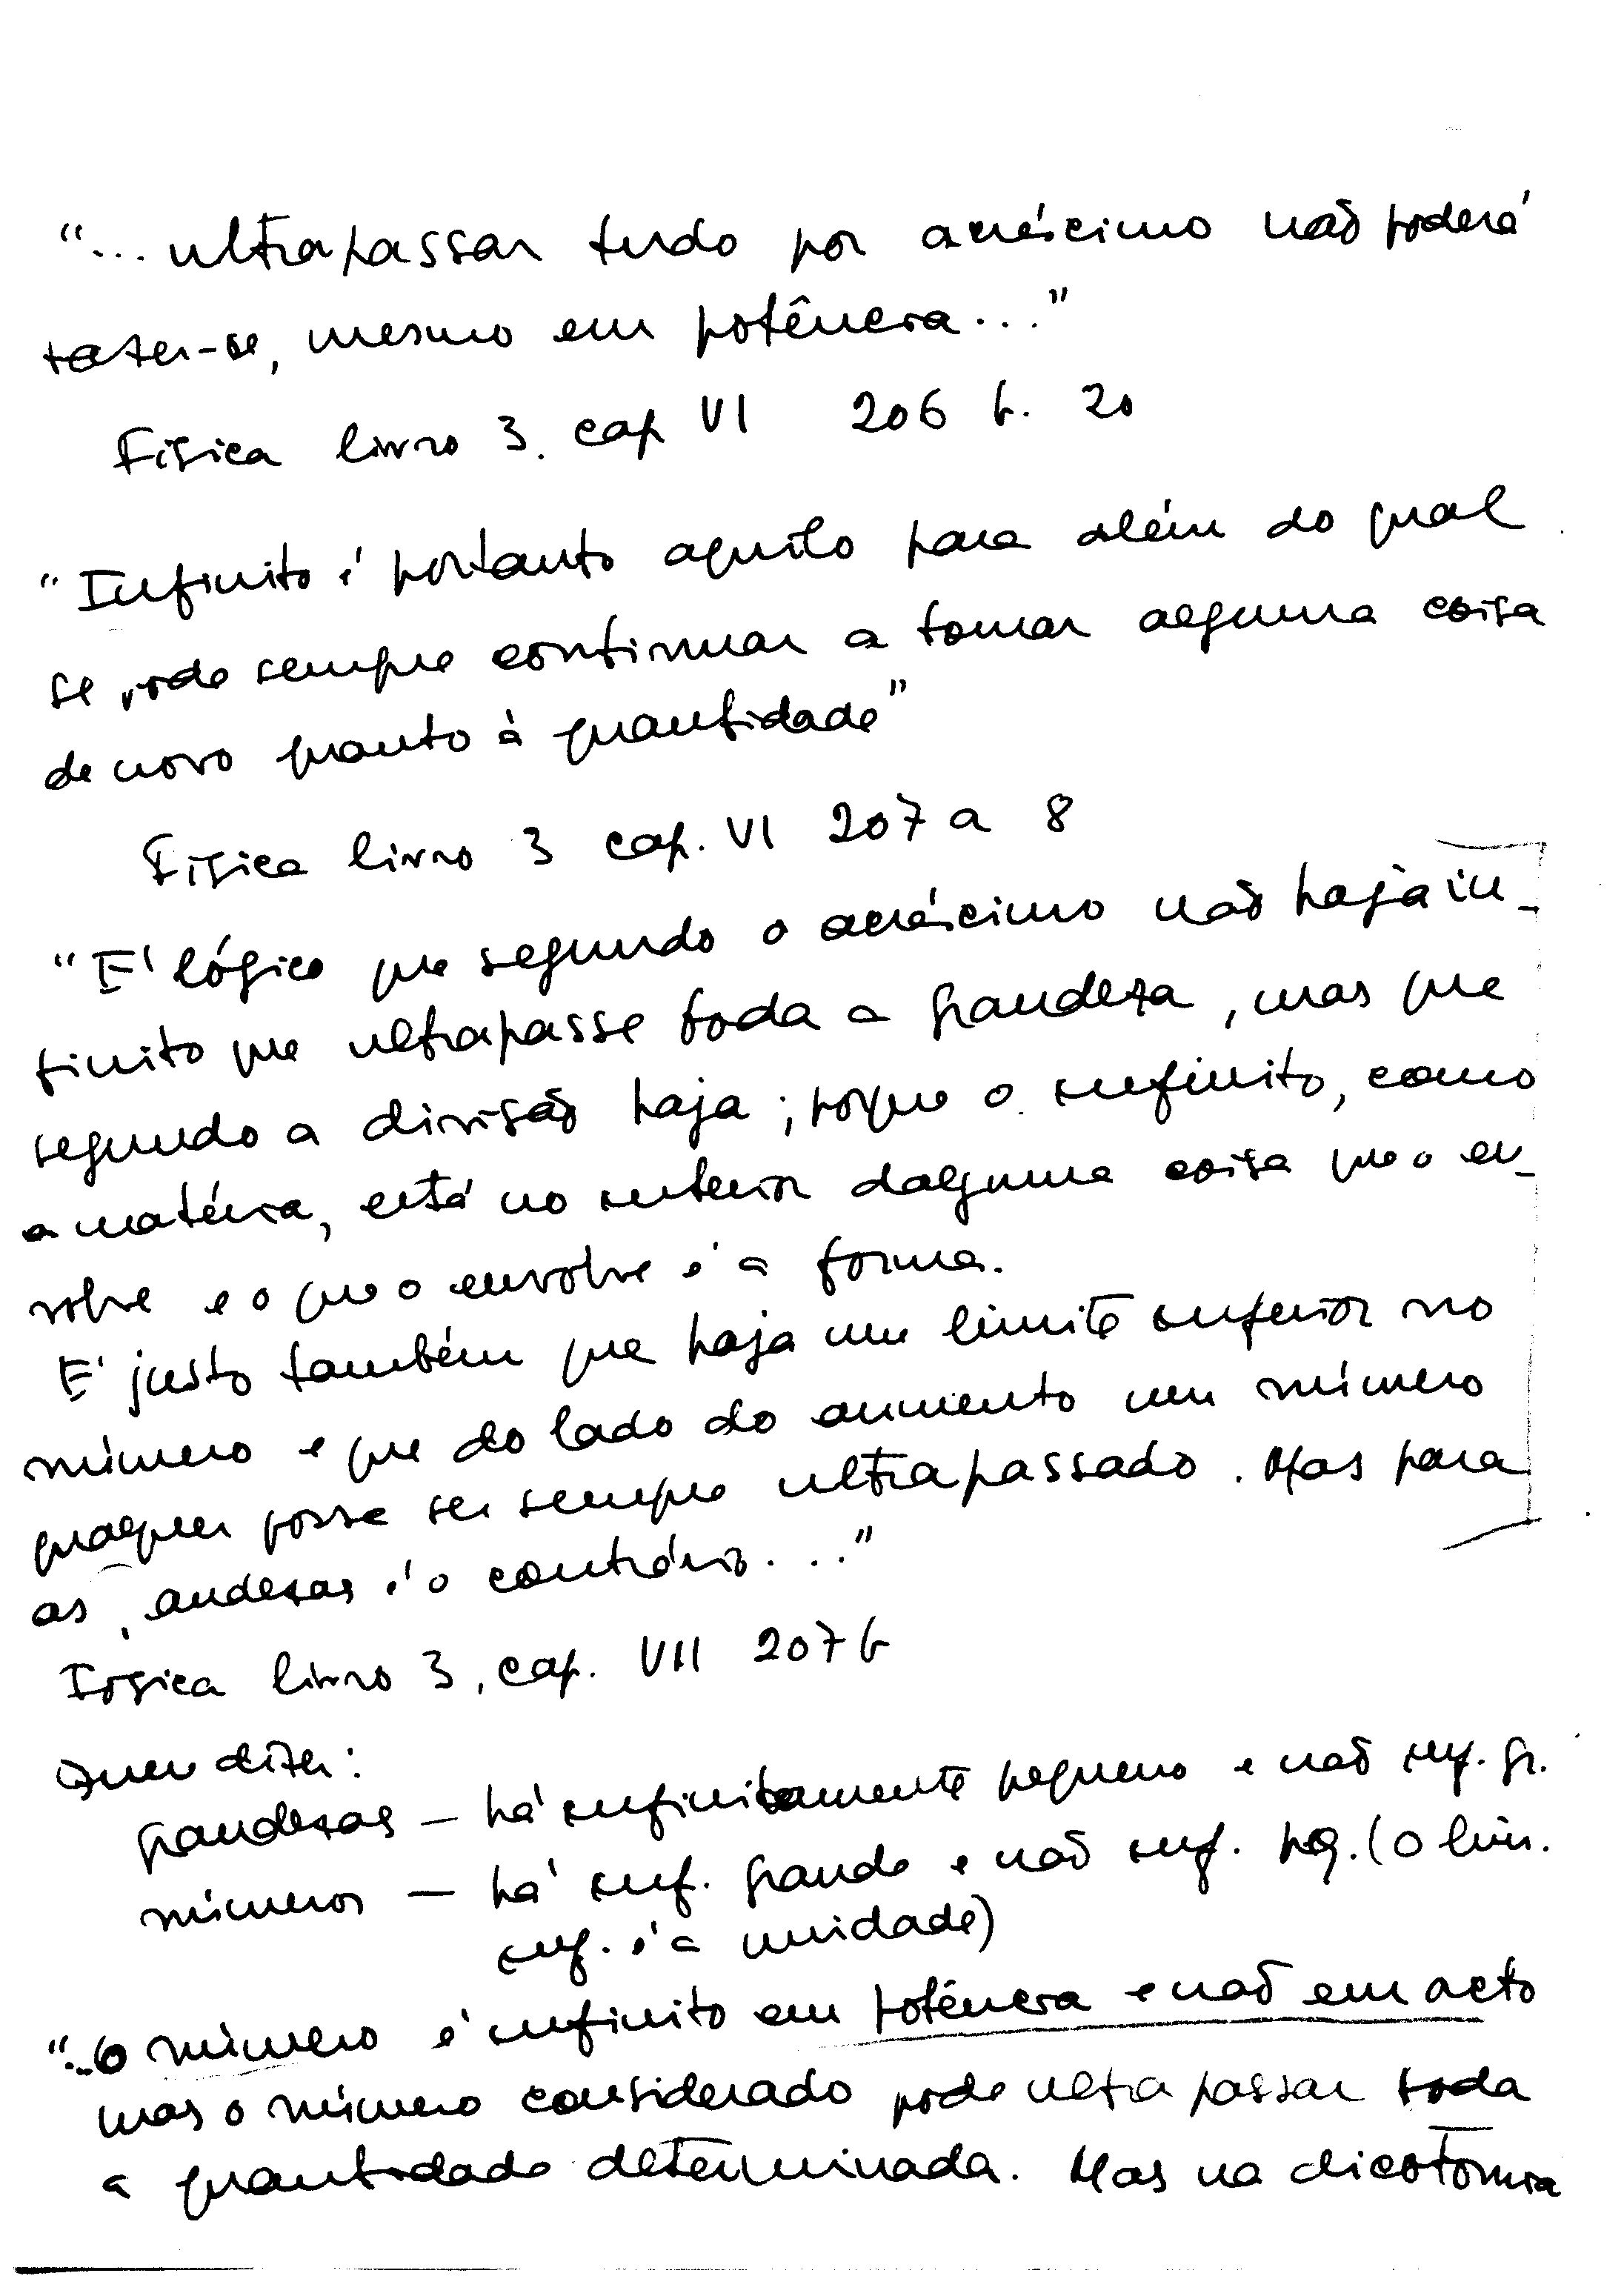 "... ultrapassar tudo por acréscimo não poderá
fazer-se, mesmo em potência..."
Física livro 3. cap VI 206 b. 20
"Infinito é portanto aquilo para além do qual
se pode sempre continuar a tomar alguma coisa
de novo quanto à quantidade"
Física livro 3 cap. VI 207 a 8
"É lógico que segundo o acréscimo não haja in-
finito que ultrapasse toda a grandeza, mas que
segundo a divisão haja; porque o infinito, como
a matéria, está no interior dalguma coisa que o en-
volve e o que o envolve é a forma.
É justo também que haja um limite inferior no
número e que do lado do aumento um número
qualquer possa ser sempre ultrapassado. Mas para
as grandezas é o contrário..."
Física livro 3, cap. VII 207 b
Quer dizer:
grandezas — há infinitamente pequeno e não inf. gr.
números — há inf. grande e não inf. peq. (o lim.
inf. é a unidade)
"..o número é infinito em potência e não em acto
mas o número considerado pode ultrapassar toda
a quantidade determinada. Mas na dicotomia